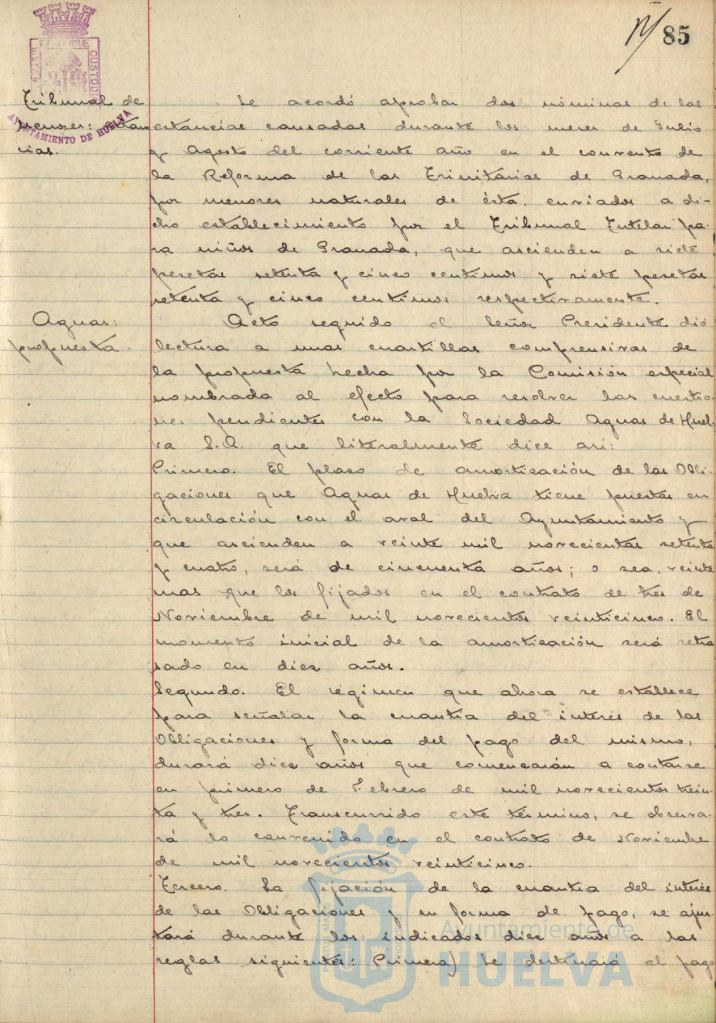 85
Tribunal de
menores: estan
cias.
Se acordó aprobar dos nóminas de las
estancias causadas durante los meses de Julio
y Agosto del corriente año en el convento de
la Reforma de las Trinitarias de Granada,
por menores naturales de ésta, enviados a di
cho establecimiento por el Tribunal Tutelar pa-
ra niños de Granada, que ascienden a siete
pesetas setenta y cinco centimos y siete pesetas
setenta y cinco centimos respectivamente.
Aguas:
propuesta.
Acto seguido el Señor Presidente dió
lectura a unas cuartillas comprensivas de
la propuesta hecha por la Comisión especial
nombrada al efecto para resolver las cuestio-
nes pendientes con la Sociedad Aguas de Huel-
va S.A. que literalmente dice asi:
Primero. El plazo de amortización de las Obli-
gaciones que Aguas de Huelva tiene puestas en
circulación con el aval del Ayuntamiento y
que ascienden a veinte mil novecientas setenta
y cuatro, será de cincuenta años; o sea, veinte
mas que los fijados en el contrato de tres de
Noviembre de mil novecientos veinticinco. El
momento inicial de la amortización será retra
sado en diez años.
Segundo. El régimen que ahora se establece
para señalar la cuantia del interés de las
Obligaciones y forma del pago del mismo,
durará diez años que comenzarán a contarse
en primero de Febrero de mil novecientos trein-
ta y tres. Transcurrido este término, se observa-
rá lo convenido en el contrato de Noviembre
de mil novecientos veinticinco.
Tercero. La fijación de la cuantia del interés
de las Obligaciones y su forma de pago, se ajus
tará durante los indicados diez años a las
reglas siguientes: Primera) Se destinará al pago
AYUNTAMIENTO DE HUELVA
CUSTODIA
Ayuntamiento de
HUELVA